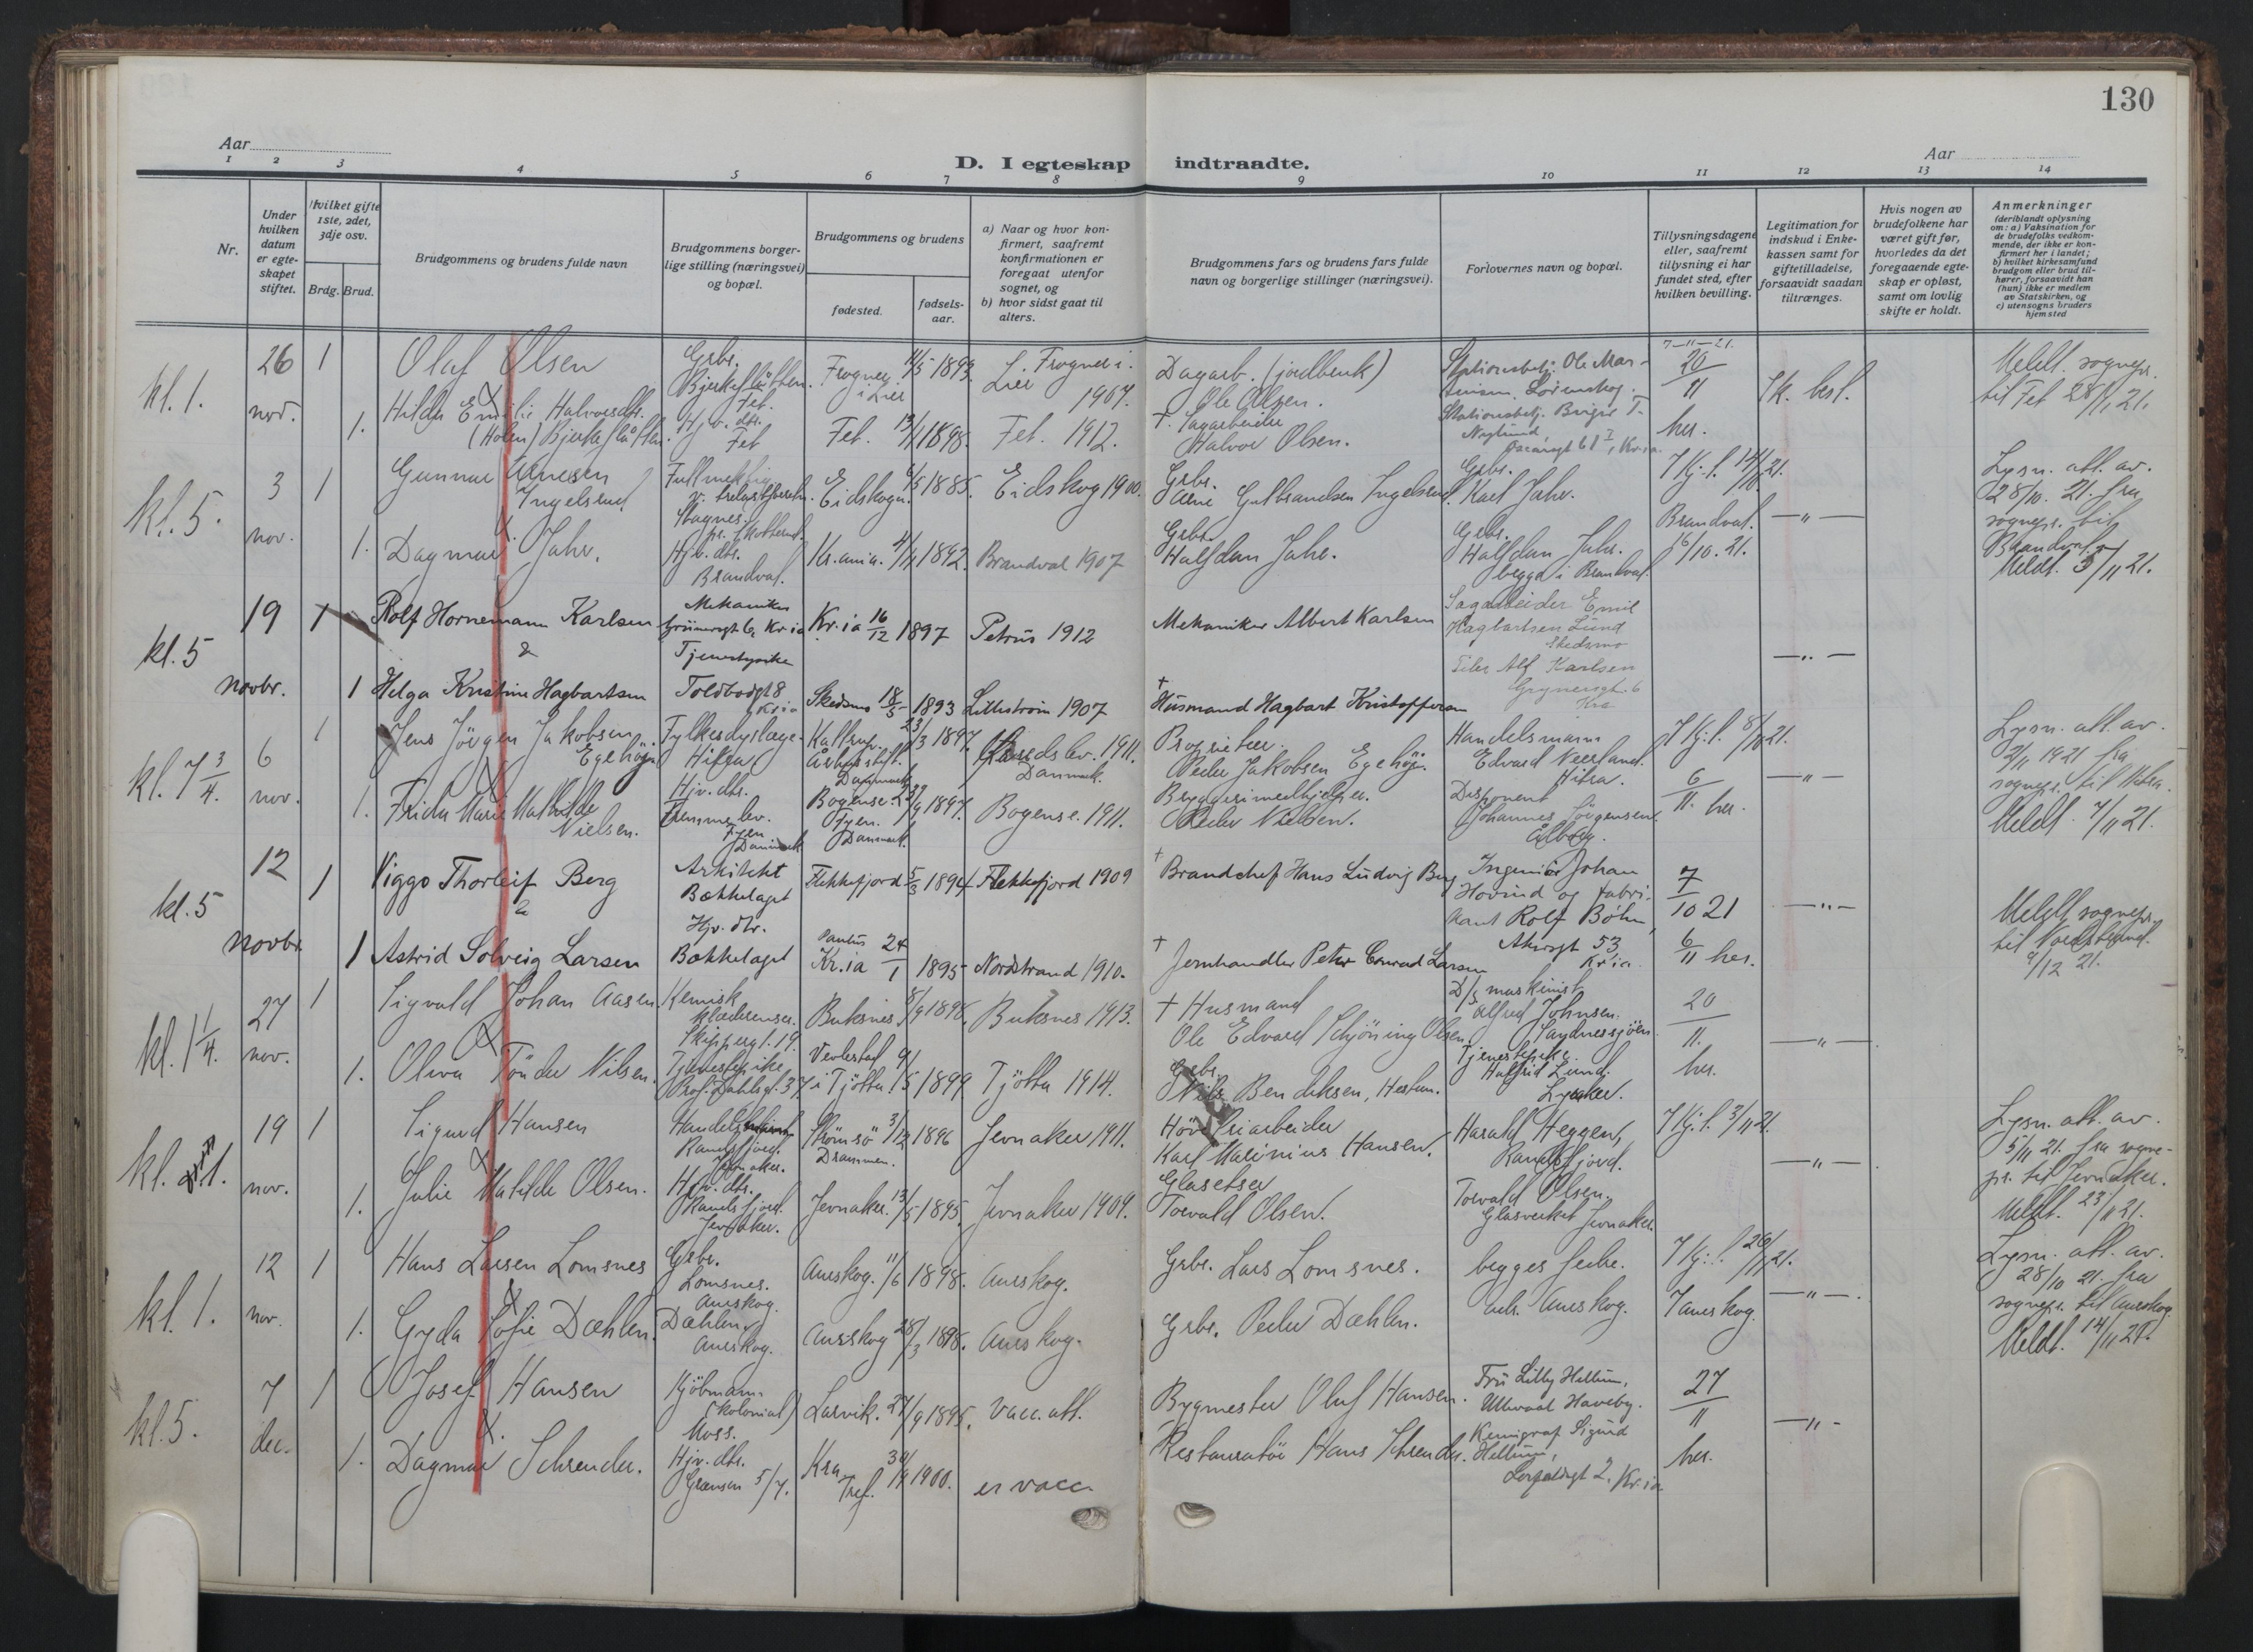 130
Aar
Aar
D. I egteskap indtraadte.
1 2 3 4 5 6 7 8 9 10 11 12 13 14
Nr.
Under
hvilken
datum
er egte-
skapet
stiftet.
Hvilket gifte
1ste, 2det,
3dje osv.
Brdg. Brud.
Brudgommens og brudens fulde navn
Brudgommens borger-
lige stilling (næringsvei)
og bopæl.
Brudgommens og brudens
fødested.
fødsels-
aar.
a) Naar og hvor kon-
firmert, saafremt
konfirmationen er
foregaat utenfor
sognet, og
b) hvor sidst gaat til
alters.
Brudgommens fars og brudens fars fulde
navn og borgerlige stillinger (næringsvei).
Forlovernes navn og bopæl.
Tillysningsdagene
eller, saafremt
tillysning ei har
fundet sted, efter
hvilken bevilling.
Legitimation for
indskud i Enke-
kassen samt for
giftetilladelse,
forsaavidt saadan
tiltrænges.
Hvis nogen av
brudefolkene har
været gift før,
hvorledes da det
foregaaende egte-
skap er opløst,
samt om lovlig
skifte er holdt.
Anmerkninger
(deriblandt oplysning
om: a) Vaksination for
de brudefolks vedkom-
mende, der ikke er kon-
firmert her i landet;
b) hvilket kirkesamfund
brudgom eller brud til-
hører, forsaavidt han
(hun) ikke er medlem
av Statskirken, og
c) utensogns bruders
hjemsted
kl. 1.
26
nov.
1
Olaf Olsen
Grbr.
Bjerkeslåtten
Fet.
Frogner
i Lier
11/5 1893.
Frogner i
Lier
1907.
Dagarb. (jordbruk)
Ole Olsen.
Stationsbetj. Ole Mar-
tinsen, Lørenskog.
7-11-21.
20/11
her.
Sk. besl.
Meldt sognepr.
til Fet 28/11 21.
1.
Hilda Emilie Halvorsdtr.
(Holen) Bjerkeslåtten.
Hjv. dtr.
Fet
Fet. 13/1 1898.
Fet. 1912.
† Sagarbeider
Halvor Olsen.
Stationsbetj.
Oscarsgt 61 I, Kr.ia
kl. 5.
3
nov.
1
Gunnar Arnesen
Ingelsrud
Fullmektig
Magnor
pr. Skotterud.
Eidskogn. 6/5 1885.
Eidskog 1900.
Grbr.
Arne Gulbrandsen Ingelsrud.
Grbr.
Karl Jahr.
7 Kj. l. 14/10 21.
Brandval.
16/10. 21.
— " —
Lysn. att. av.
28/10. 21. fra
sognepr. til
Brandval.
Meldt. 5/11 21.
1.
Dagmar Jahr.
Hjv. dtr.
Brandval.
Kr.ania. 4/4 1892.
Brandval 1907
Grbr.
Halfdan Jahr.
Grbr.
Halfdan Jahr.
begge i Brandval.
kl. 5
19
novbr.
1
Rolf Hornemann Karlsen
&
Mekaniker
Grünersgt 6, Kr.ia
Kr.ia 16/12 1897
Petrus 1912
Mekaniker Albert Karlsen
Sagarbeider Emil
Hagbartsen Lund
Skedsmo
— " —
1
Helga Kristine Hagbartsen
Tjenestepike
Toldbodgt 8
Kr.ia
Skedsmo 18/5 1893
Lillestrøm 1907
†
Husmand Hagbart Kristoffersen
Alf Karlsen
Grynersgt. 6
Kra
kl. 7 3/4.
6
nov.
1
Jens Jörgen Jakobsen
Egehöj.
Fylkesdyrlæge
Hitra
Kattrup.
Århus stift.
Danmark
23/3 1897.
1911.
Danmark.
Proprietær.
Peder Jakobsen Egehöj.
Handelsmann
Edvard Neerland.
Hitra.
7 Kj. l. 8/10 21.
6/11. her.
— " —
Lysn. att. av.
2/11 1921 fra
sognepr. til Hitra.
Meldt. 7/11 21.
1.
Frida Marie Mathilde
Nielsen.
Hjv. dtr.
Fyen
Danmark
Bogense.
Fyen.
Danmark.
1897.
Bogense. 1911.
Bryggerimedhjelper.
Peder Nielsen.
Disponent
Johannes Jörgensen
Ålborg.
kl. 5
12
novbr.
1
Viggo Thorleif Berg
&
Arkitekt
Bækkelaget
Flekkefjord 5/3 1894
Flekkefjord 1909
†
Brandchef Hans Ludvig Berg
Ingeniør Johan
Hovind og fabri-
kant Rolf Bøhn,
Akersgt 53
Kr.ia
7/10 21
6/11 her.
— " —
Meldt sognepr.
til Nordstrand.
9/12 21.
1
Astrid Solveig Larsen
Hjv. dtr.
Bækkelaget
Paulus
Kr.ia 24/1 1895
Nordstrand 1910.
†
Jernhandler Peter Conrad Larsen
kl. 1 1/4.
27
nov.
1
Sigvald Johan Aasen.
&
Kemisk
klæderenser.
Skippergt. 19.
Buksnes. 8/9 1898.
Buksnes 1913.
† Husmand
Ole Edvard Schjöning Olsen
D/s maskinist
Alfred Johnsen.
Sandnessjöen.
20/11.
her.
— " —
1.
Oliva Tönder Nilsen.
Tjenestepike
Prof. Dahlsgt. 37
i Tjötta. 9/5 1899
Tjötta 1914.
Grbr.
Nils Bendiksen, Hestun.
Tjenestepike.
Halfrid Lund.
Lysaker.
kl. 1.
19
nov.
1
Sigurd Hansen
Handels
Randsfjord.
Jevnaker.
Strömsö
Drammen.
3/12 1896
Jevnaker 1911.
Höveriarbeider
Karl Marinius Hansen.
Harald Heggen,
Randsfjord.
7 Kj. l. 3/11 21.
— " —
Lysn. att. av.
5/11 21. fra sogne-
pr. til Jevnaker.
Meldt. 23/11 21.
1.
Julie Matilde Olsen.
Hjv. dtr.
Randsfjord.
Jevnaker.
Jevnaker. 13/5 1895.
Jevnaker 1909.
Glasetser
Torvald Olsen.
Torvald Olsen.
Glasverket Jevnaker.
kl. 1.
12
nov.
1
Hans Larsen Lomsnes
&
Grbr.
Lomsnes.
Aurskog.
Aurskog. 11/6 1898.
Aurskog.
Grbr. Lars Lomsnes.
begges fedre.
adr. Aurskog.
7 Kj. l. 20/11 21.
7 Aurskog.
— " —
Lysn. att. av.
28/10 21. fra
sognepr. til Aurskog
Meldt. 14/11 21.
1.
Gyda Sofie Dæhlen.
Dæhlen
Aurskog.
Aurskog 28/3 1898.
Aurskog.
Grbr. Peder Dæhlen.
kl. 5.
7
dec.
1
Josef Hansen
&.
Kjöbmann
(kolonial)
Moss.
Larvik. 27/9 1895.
vacc. att.
Bygmester Oluf Hansen.
Fru Lilly Hellum,
Ullevaal Haveby.
27/11
her.
— " —
1.
Dagmar Schrender.
Hjv. dtr.
Grænsen 5/7.
Kra
Tref.
30/ 1900.
er vacc.
Restauratör Hans Schrender.
Kemigraf Sigurd
Hellum,
2, Kr.ia